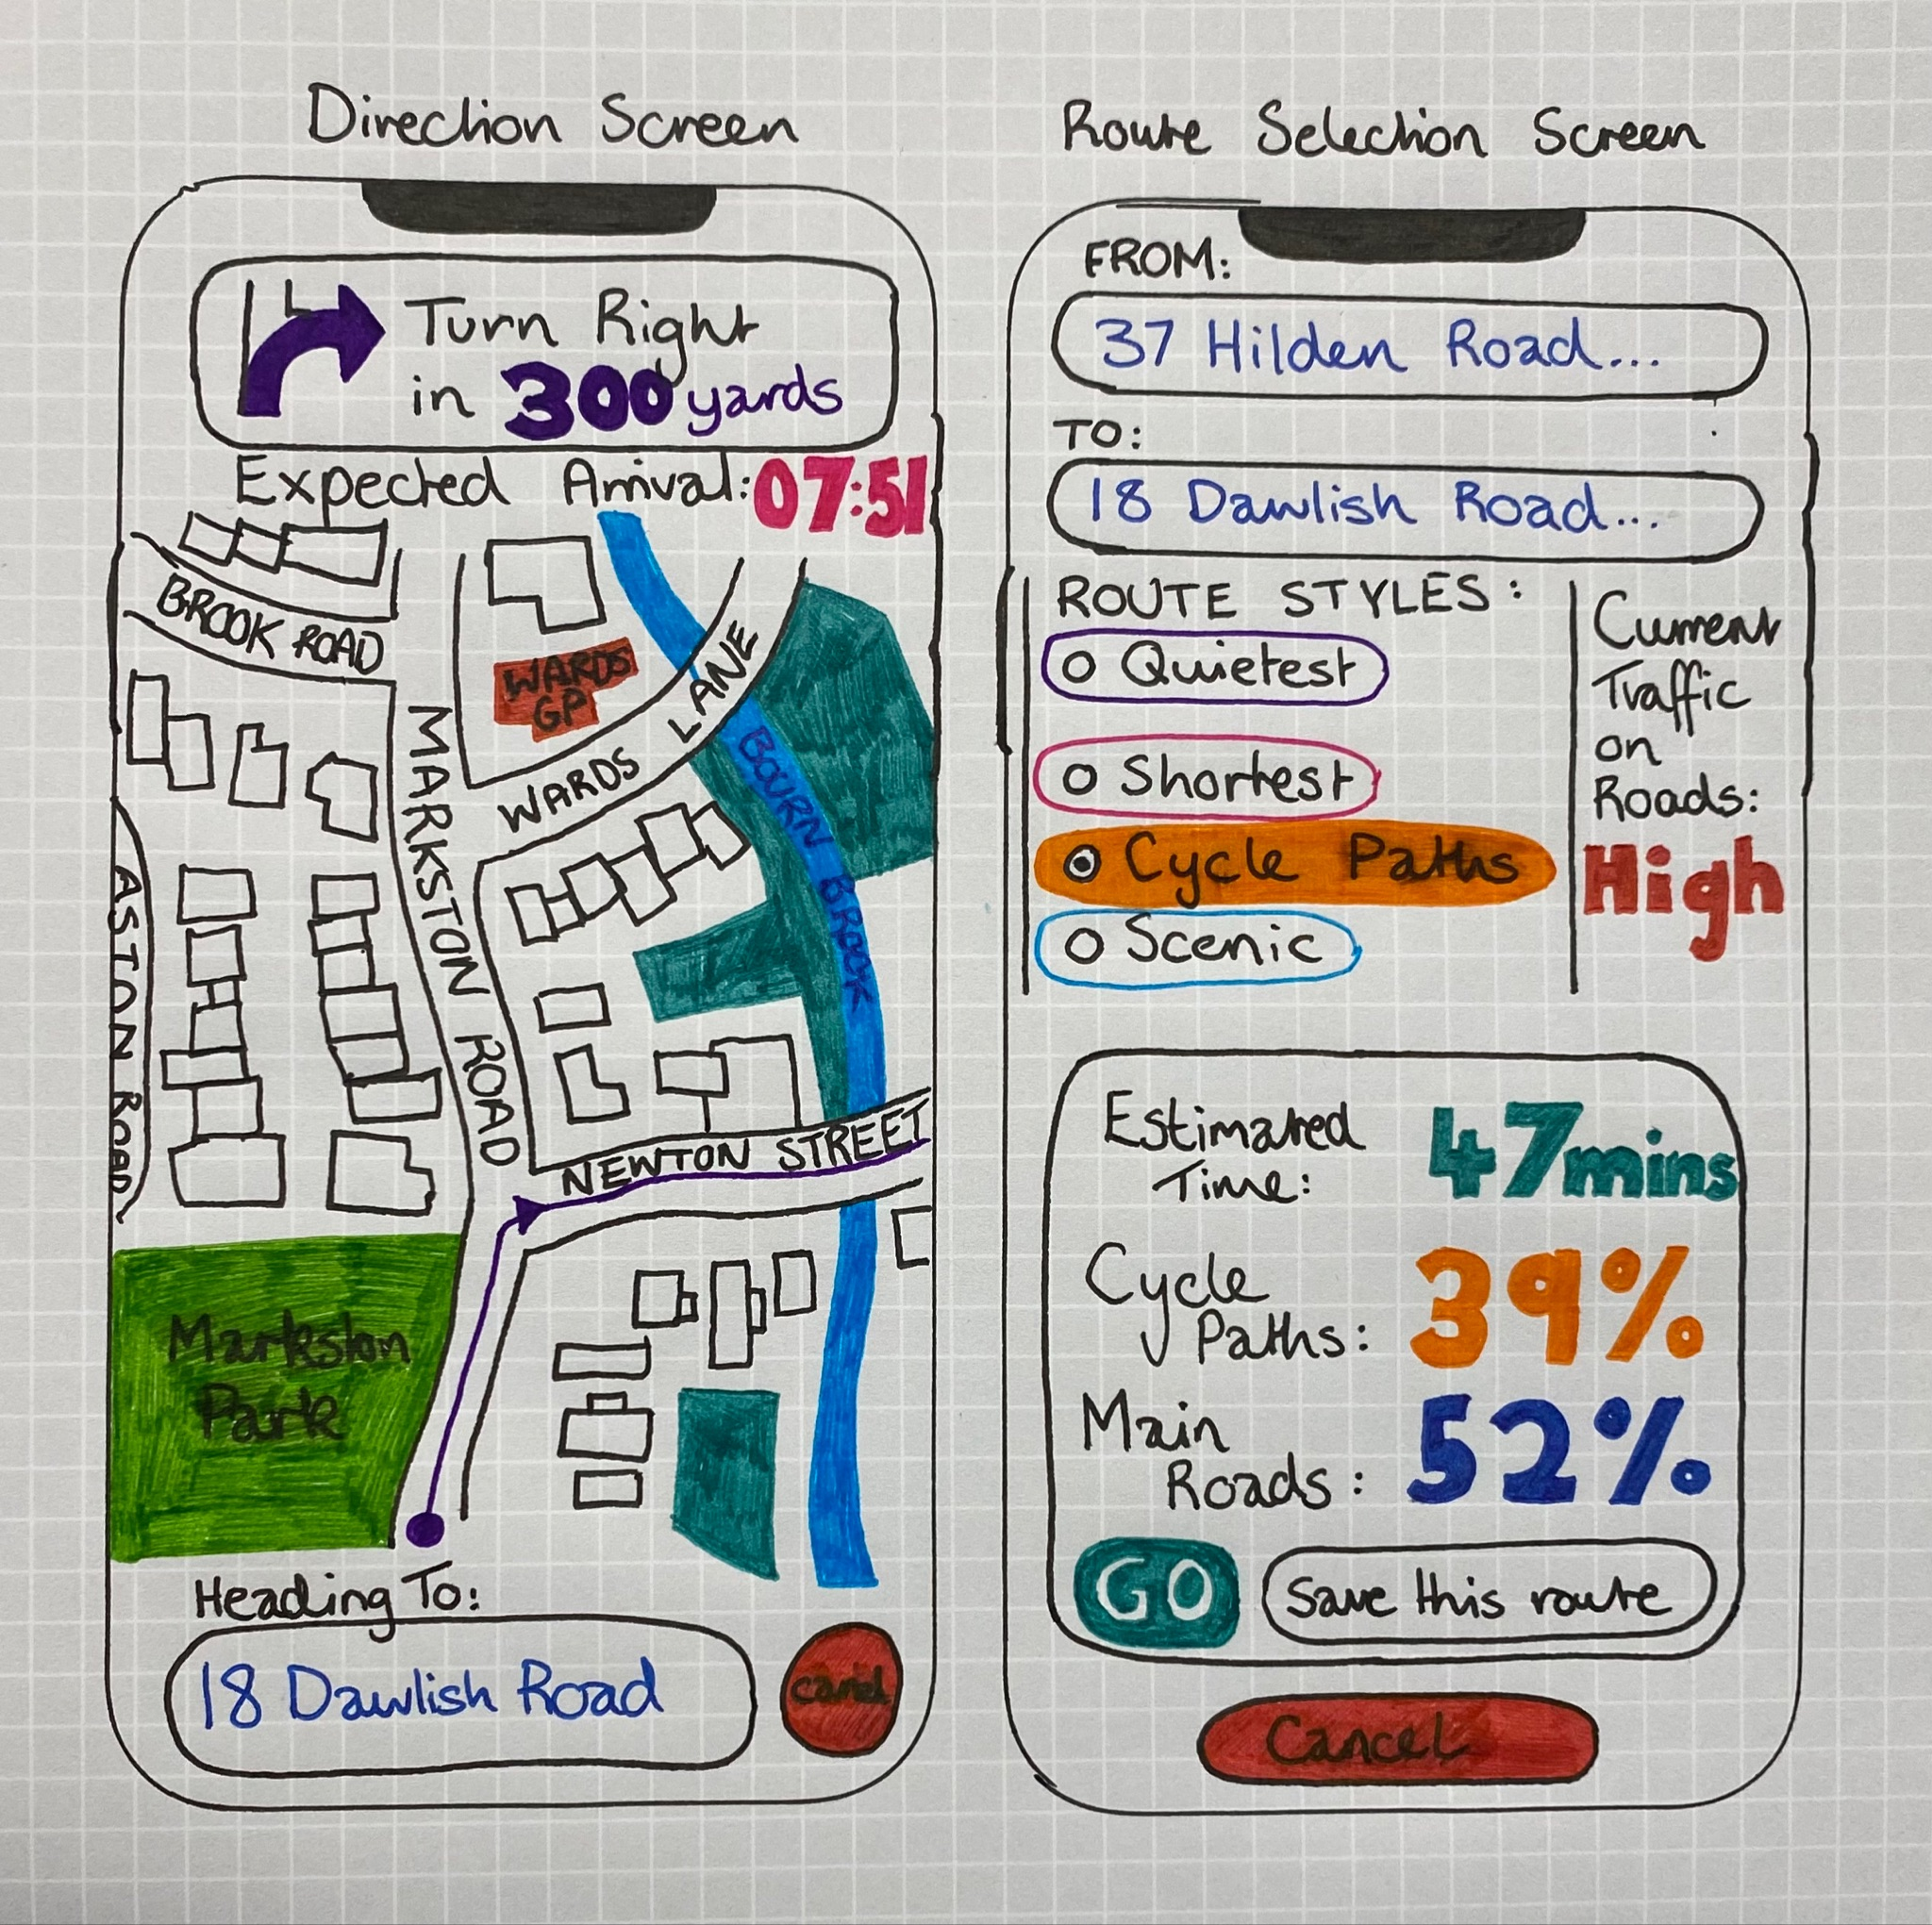 Direction Screen
Turn Right
in 300 yards
Expected Arrival: 07:51
BROOK ROAD
WARDS
GP
WARDS LANE
MARKSTON ROAD
BOURN BROOK
ASTON ROAD
NEWTON STREET
Markston
Park
Heading To:
18 Dawlish Road
cancel
Route Selection Screen
FROM:
37 Hilden Road...
TO:
18 Dawlish Road...
ROUTE STYLES:
Quietest
Shortest
Cycle Paths
Scenic
Current
Traffic
on
Roads:
High
Estimated
Time:
47mins
Cycle
Paths:
39%
Main
Roads:
52%
GO
Save this route
Cancel